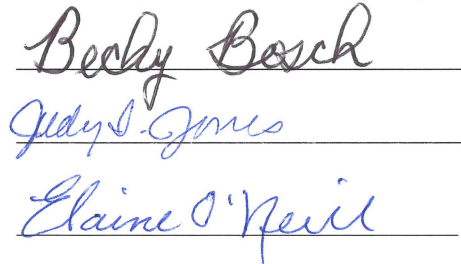 Becky Bosch
Judy D. Jones
Elaine O'Neill